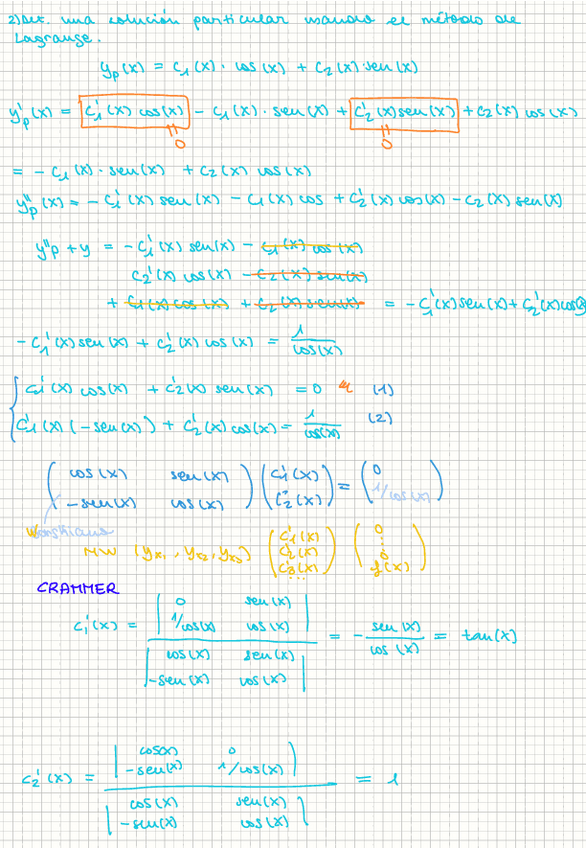 2) Det. una solución particular usando el método de
Lagrange.
y_p(x) = c₁(x) · cos(x) + c₂(x) · sen(x)
y'_p(x) = c₁'(x) cos(x) - c₁(x) · sen(x) + c₂'(x) sen(x) + c₂(x) cos(x)
= 0 = 0
= - c₁(x) · sen(x) + c₂(x) cos(x)
y''_p(x) = - c₁'(x) sen(x) - c₁(x) cos + c₂'(x) cos(x) - c₂(x) sen(x)
y''p + y = - c₁'(x) sen(x) - c₁(x) cos(x)
c₂'(x) cos(x) - c₂(x) sen(x)
+ c₁(x) cos(x) + c₂(x) sen(x) = - c₁'(x) sen(x) + c₂'(x) cos(x)
- c₁'(x) sen(x) + c₂'(x) cos(x) = 1/cos(x)
{ c₁'(x) cos(x) + c₂'(x) sen(x) = 0 (1)
c₁'(x) (-sen(x)) + c₂'(x) cos(x) = 1/cos(x) (2)
( cos(x) sen(x) ) ( c₁'(x) ) = ( 0 )
( -sen(x) cos(x) ) ( c₂'(x) ) ( 1/cos(x) )
Wronskiano
MW (y_x₁, y_x₂, y_x₃) ( c₁'(x) c₂'(x) c₃'(x) ... ) ( 0 : 0 f(x) )
CRAMMER
c₁'(x) = | 0 sen(x) |
| 1/cos(x) cos(x) |
| cos(x) sen(x) |
| -sen(x) cos(x) |
= - sen(x)/cos(x) = tan(x)
c₂'(x) = | cos(x) 0 |
| -sen(x) 1/cos(x) |
| cos(x) sen(x) |
| -sen(x) cos(x) |
= 1